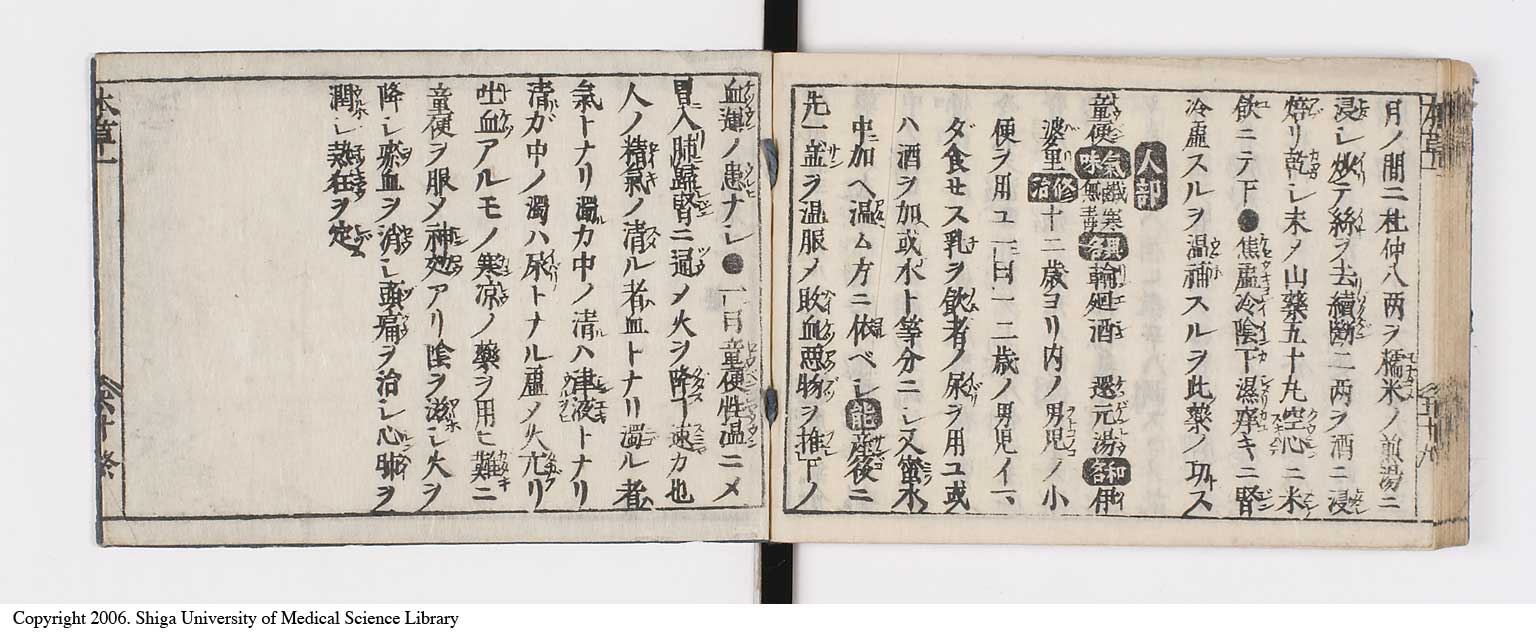 月ノ間ニ杜仲八両ヲ糯米ノ煎湯ニ
浸シ炒テ絲ヲ去續斷二両ヲ酒ニ浸
焙リ乾シ末メ山藥五十丸空心ニ米
飲ニテ下●焦虚冷陰下濕痒キニ腎
冷虚スルヲ温補スルヲ此藥ノ功ス
人部
童便 氣味 鹹寒無毒 異名 輪廻酒 還元湯 和名 伊
婆里 修治 十二歳ヨリ内ノ男児ノ小
便ヲ用ユ一曰一二歳ノ男児イマ
ダ食セス乳ヲ飲者ノ尿ヲ用ユ或
ハ酒ヲ加或水ト等分ニシ又蜜水
中加ヘ温ム方ニ依ベシ 能 産後ニ
先一盃ヲ温服メ敗血悪物ヲ推下ノ
血運ノ患ナシ●一曰童便性温ニメ
胃入肺歸腎ニ通メ火ヲ降丁速カ也
人ノ精氣ノ清ル者血トナリ濁ル者
氣トナリ濁カ中ノ清ハ津液トナリ
清ガ中ノ濁ハ尿トナル虚メ火亢リ
吐血アルモノ寒凉ノ藥ヲ用ヒ難ニ
童便ヲ服メ神効アリ陰ヲ滋シ火ヲ
降シ瘀血ヲ消シ頭痛ヲ治シ心肺ヲ
潤シ熱狂ヲ定
本草一
終
Copyright 2006. Shiga University of Medical Science Library